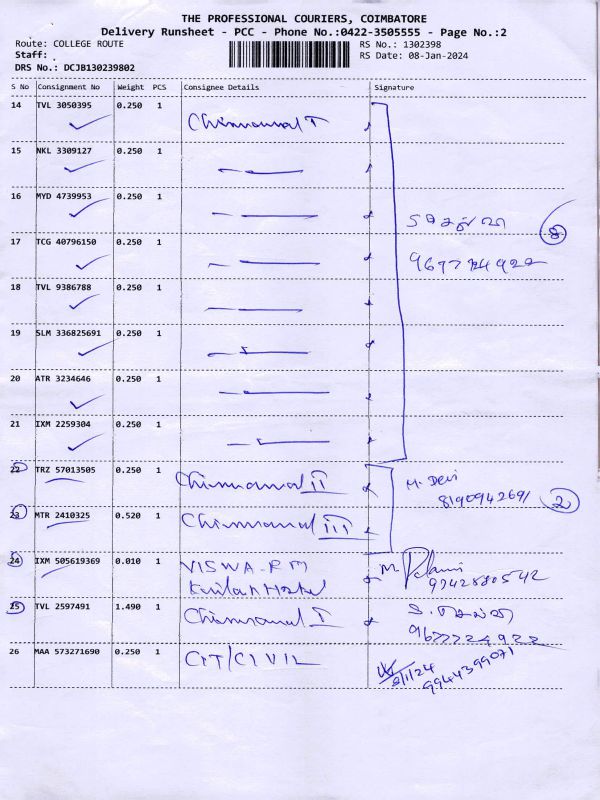 THE PROFESSIONAL COURIERS, COIMBATORE
Delivery Runsheet - PCC - Phone No.:0422-3505555 - Page No.:2
Route: COLLEGE ROUTE RS No.: 1302398
Staff: RS Date: 08-Jan-2024
DRS No.: DCJB130239802
S No Consignment No Weight PCS Consignee Details Signature
14 TVL 3050395 0.250 1 I
15 NKL 3309127 0.250 1
16 MYD 4739953 0.250 1
8
17 TCG 40796150 0.250 1
18 TVL 9386788 0.250 1
19 SLM 336825691 0.250 1
20 ATR 3234646 0.250 1
21 IXM 2259304 0.250 1
22 TRZ 57013505 0.250 1 II M. Devi
8190942691 2
23 MTR 2410325 0.520 1 III
24 IXM 505619369 0.010 1 VISWA.RM M.
9942880542
25 TVL 2597491 1.490 1 I
9677724922
26 MAA 573271690 0.250 1 CIT/CIVIL
8/1/24
9944399071